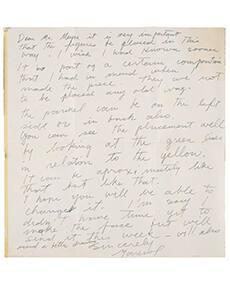 Dear Mr Meyer it is very important
that the figures be placed in this
way. I wish I had known sooner
It is part of a certain composition
that I had in mind when I
made the piece. They are not
to be placed any old way.
the parasol can be on the left
side or in back also.
You can see the placement well
by looking at the green base
in relation to the yellow.
It can be aproximitely like
that but like that.
I hope you will be able to
change it. I'm sorry I
didn't have time yet to
make the base but will
send it this week - will also
send a letter
Sincerely